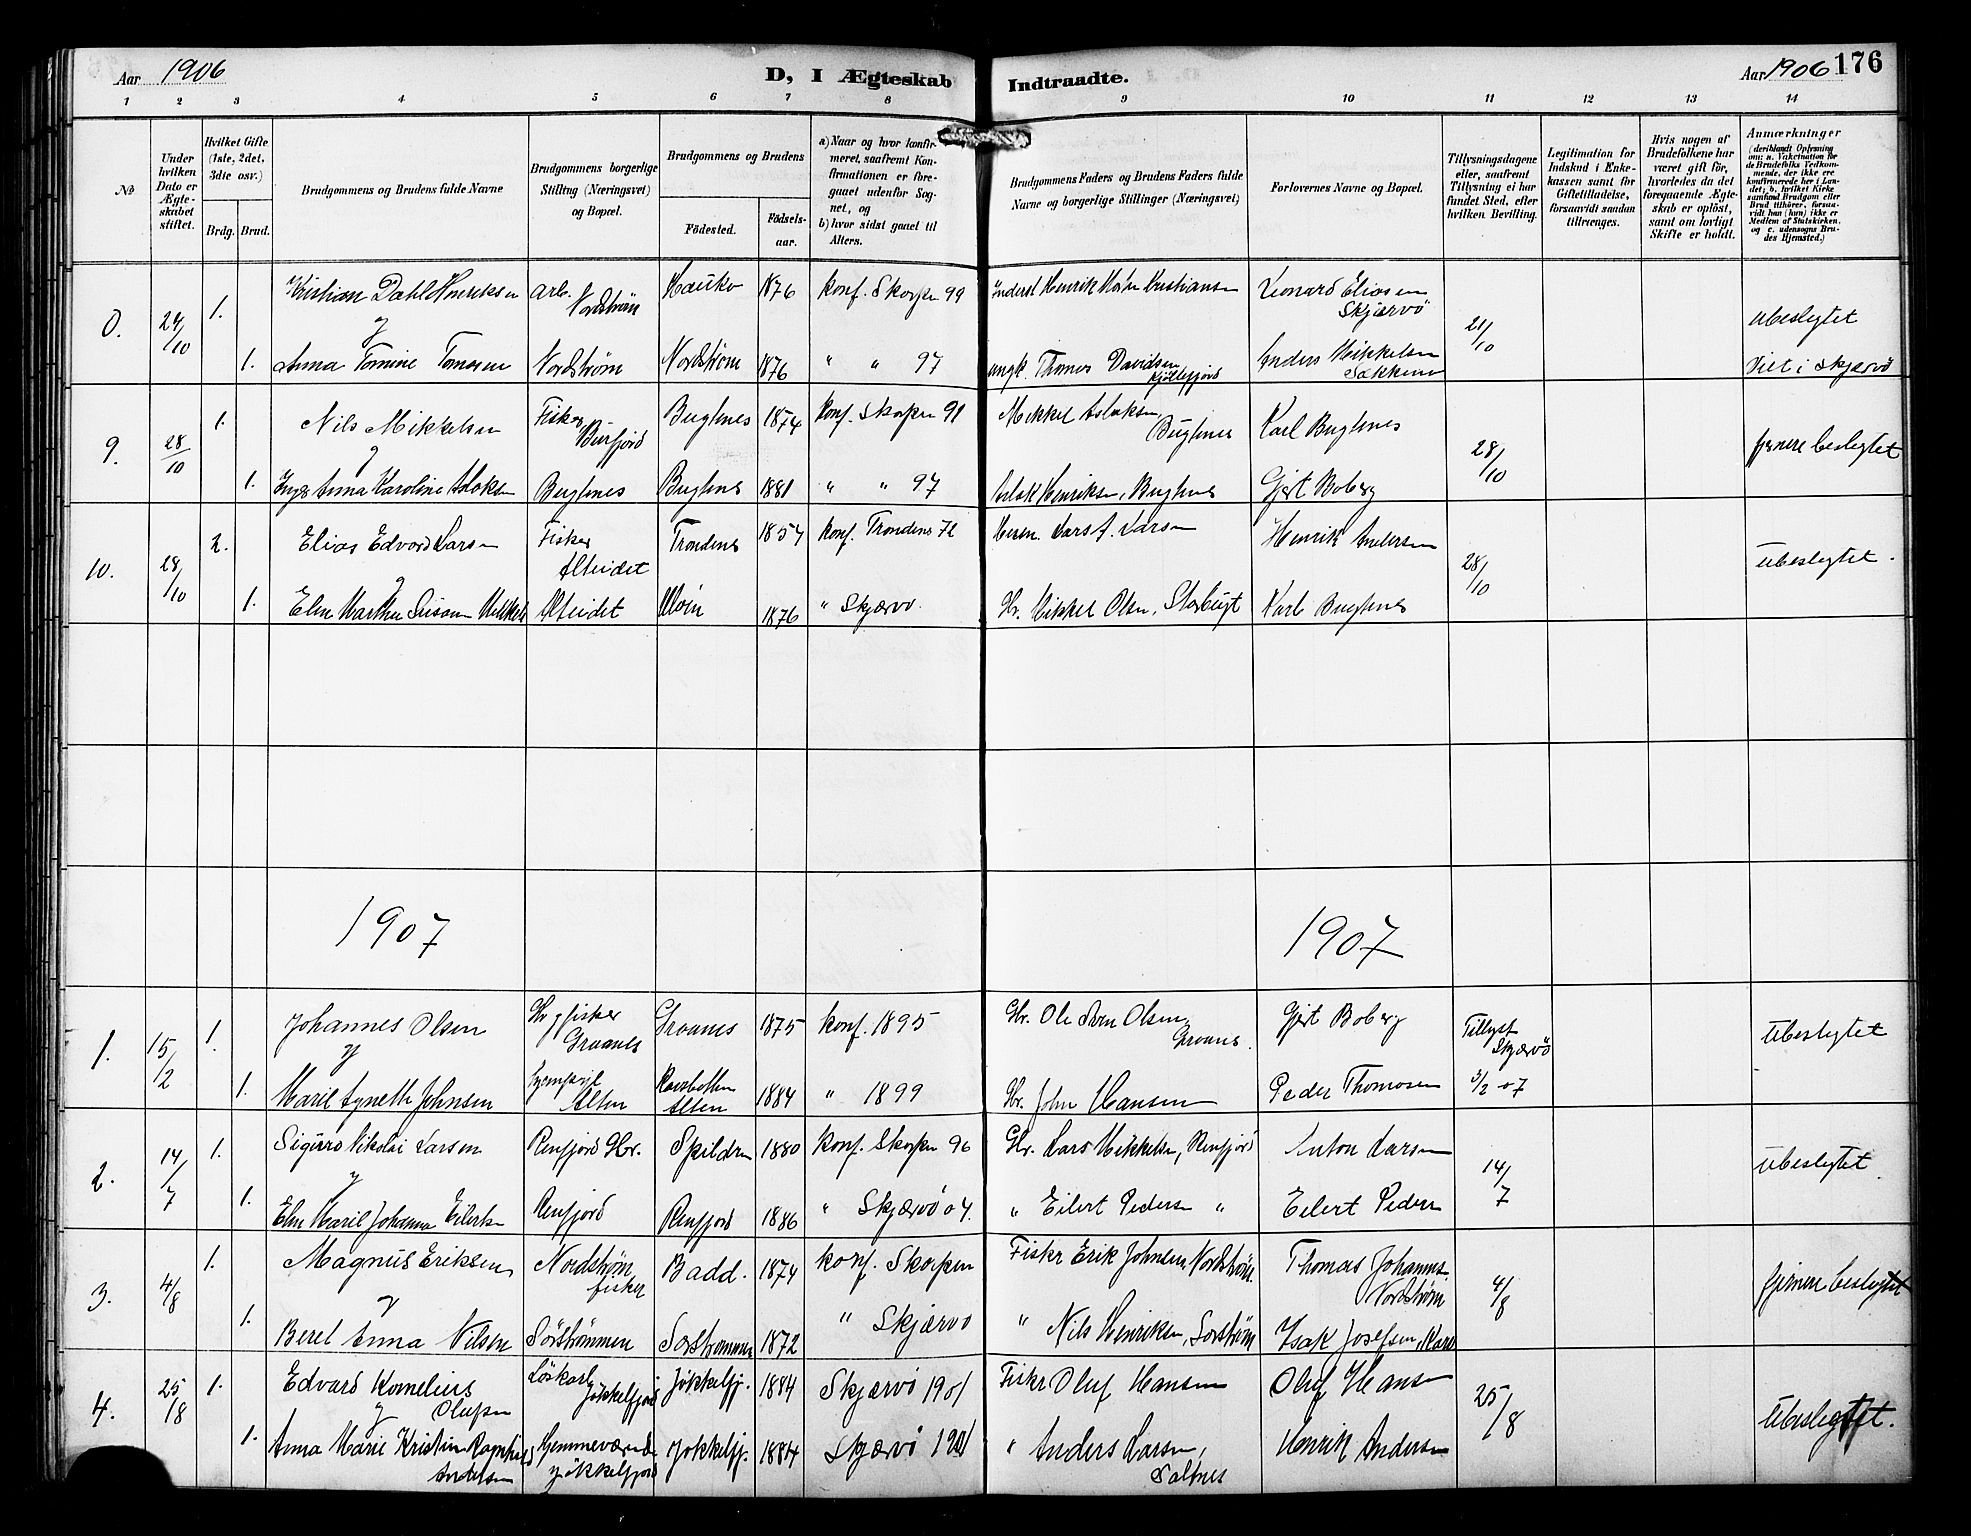 Aar 1906
D, I Ægteskab Indtraadte.
Aar 1906 176
1 2 3 4 5 6 7 8 9 10 11 12 13 14
№
Under hvilken Dato er Ægteskabet stiftet.
Hvilket Gifte (1ste, 2det, 3dte osv.)
Brdg. Brud.
Brudgommens og Brudens fulde Navne
Brudgommens borgerlige Stilling (Næringsvei) og Bopæl.
Brudgommens og Brudens
Födested.
Födselsaar.
a) Naar og hvor konfirmeret, saafremt Konfirmationen er foregaaet udenfor Sognet, og
b) hvor sidst gaaet til Alters.
Brudgommens Faders og Brudens Faders fulde Navne og borgerlige Stillinger (Næringsvei)
Forlovernes Navne og Bopæl.
Tillysningsdagene eller, saafremt Tillysning ei har fundet Sted, efter hvilken Bevilling.
Legitimation for Indskud i Enkekassen samt for Giftetilladelse, forsaavidt saadan tiltrænges.
Hvis nogen af Brudefolkene har været gift för, hvorledes da det foregaaende Ægteskab er oplöst, samt om lovligt Skifte er holdt.
Anmærkninger
(deriblandt Oplysning om: a. Vakcination for de Brudefolks Vedkommende, der ikke ere konfirmerede her i Landet; b. hvilket Kirkesamfund Brudgom eller Brud tilhörer, forsaavidt han (hun) ikke er Medlem af Statskirken, og c. udensogns Brudes Hjemsted.)
0. 24/10 1. Kristian Dahl Henriksen Arb. Nordström Hauko 1876 konf. Skorpen 99 Inderst Henrik Kristiansen Leonard Eliasen Skjærvö 21/10 ubeslegtet
1. Anna Tomine Tomasen Nordström Nordstrøm 1876 " " 97 ungk. Thomas Davidsen Kjöllefjord Anders Mikkelsen 
Viet i Skjærvö
9. 28/10 1. Nils Mikkelsen Fisker Burfjord Bugtnes 1874 Konf. Skorpen 91 Mikkel Aslaksen, Bugtnes Karl Bugtnes 28/10 fjernere beslegtet
1. Inger Anna Karoline Aslaksen Bugtnes Bugtnes 1881 " " 97 Aslak Henriksen, Bugtnes Gjert Boberg
10. 28/10 2. Elias Edvard Larsen Fisker Alteidet Trondenes 1857 konf. Trondenes 72 Lars Larsen Henrik Andersen 28/10 ubeslegtet.
1. Elen Marthe Susanne Mikkels Alteidet 1876 " Skjærvö. Gbr. Mikkel Olsen, Storbugt Karl Bugtnes
1907 1907
1. 15/2 1. Johannes Olsen Gbr og fisker Graanes Graanes 1875 konf. 1895 Gbr. Ole Olsen, Graanes. Gjert Boberg Tillyst Skjærvö 3/2 07 Ubeslegtet
1. Maril Agneth Johnsen Alten Alten 1884 " 1899 Gbr. John Hansen Peder Thomasen
2. 14/7 1. Sigurd Nikolai Larsen Reinfjord Gbr. Spildren 1880 konf. Skorpen 96 Gbr. Lars Mikkelsen, Reinfjord Anton Larsen 14/7 Ubeslegtet.
1. Elen Maril Johanna Eilertsen Reinfjord Reinfjord 1886 " Skjærvö 04. " Eilert Pedersen " Eilert Pedersen
3. 4/8 1. Magnus Eriksen Nordström fisker Badd. 1874 konf. Skorpen Fisker Erik Johnsen, Nordström Thomas Johannes. Nordström 4/8 fjernere beslegtet
1. Beret Anna Nilsen Sörströmmen Sorstrommen 1872 " Skjærvö " Nils Henriksen, Sorström Isak Josefsen,
4. 25/8 1. Edvard Kornelius Olufsen Löskarl Jökkelfjord Jökkelfj. 1884 Skjærvö 1901 Fiskr Oluf Hansen Oluf Hansen 25/8 Ubeslegtet.
1. Anna Marie Kristine Ragnhild Andersen Hjemmeværende Jökkelfjord Jokkelfj. 1884 Skjærvö 1901 " Anders Larsen, Saltnes Henrik Andersen